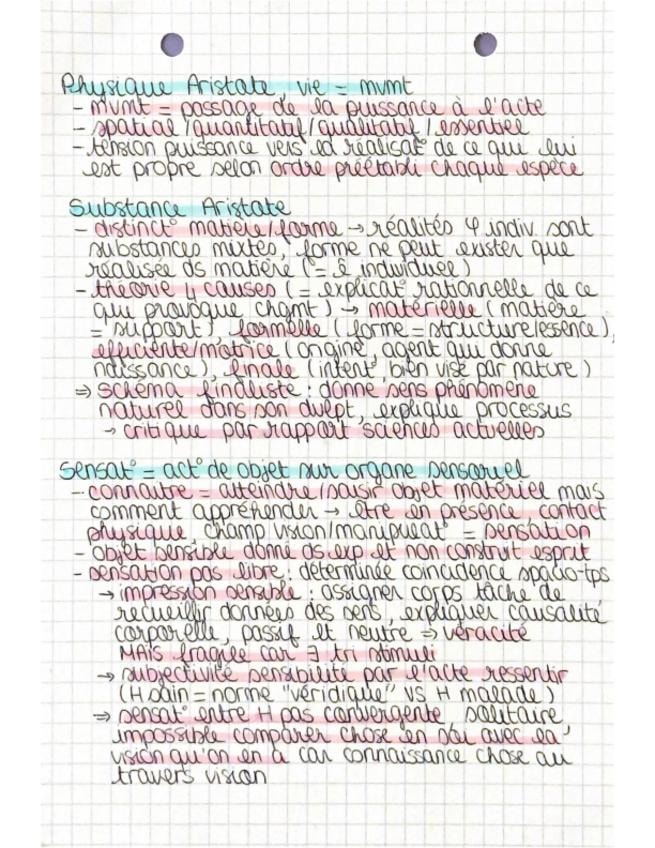 Physique Aristote, vie = mvmt
- mvmt = passage de la puissance à l'acte
- spatial / quantitatif / qualitatif / essentiel
- tension puissance vers la réalisat° de ce qui lui
est propre selon ordre préétabli chaque espèce
Substance Aristote
- distinct° matière/forme → réalités φ indiv. sont
substances mixtes, forme ne peut exister que
réalisée ds matière (= ê individuel)
- théorie 4 causes (= explicat° rationnelle de ce
qui provoque chgmt) → matérielle (matière
= support), formelle (forme = structure/essence),
efficiente/motrice (origine, agent qui donne
naissance), finale (intent°, bien visé par nature)
⇒ schéma finaliste : donne sens phénomène
naturel dans son dvlept, explique processus
→ critique par rapport sciences actuelles
Sensat° = act° de objet sur organe sensoriel
- connaître = atteindre/saisir objet matériel mais
comment appréhender → être en présence, contact
physique, champ vision/manipulat° = sensation
- objet sensible donné ds exp et non construit esprit
- sensation pas libre : déterminée coïncidence spacio-tps
→ impression sensible : assigner corps tâche de
recueillir données des sens, expliquer causalité
corporelle, passif et neutre ⇒ véracité
MAIS fragile car ∃ tri stimuli
→ subjectivité sensibilité par l'acte ressentir
(H sain = norme "véridique" VS H malade)
⇒ sensat° entre H pas convergente, solitaire,
impossible comparer chose en soi avec la
vision qu'on en a car connaissance chose au
travers vision